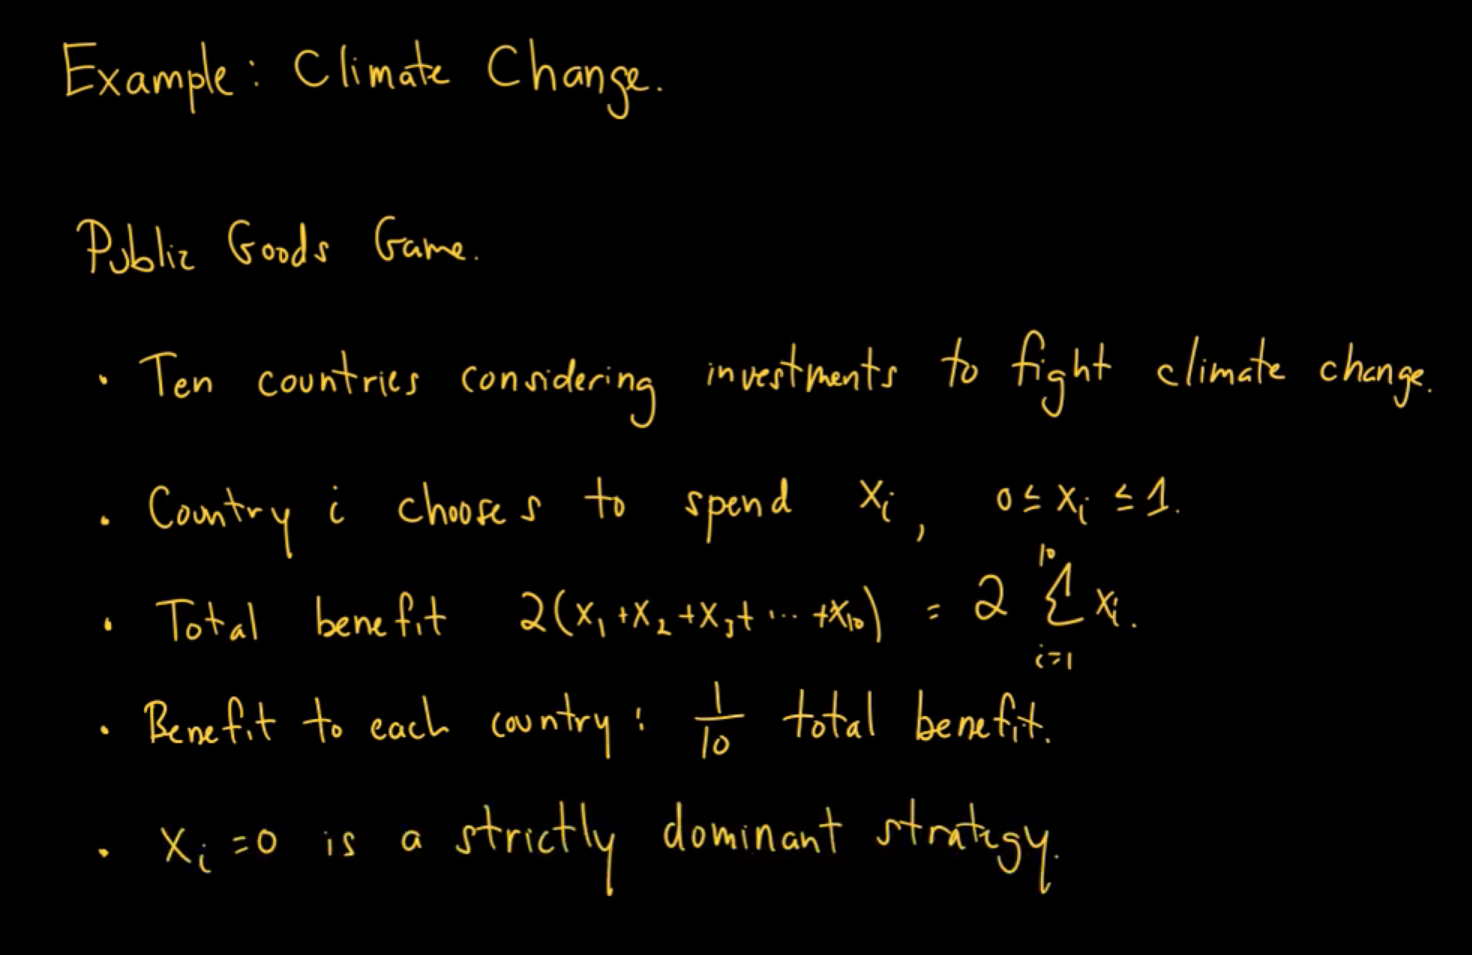 Example: Climate Change.
Public Goods Game.
• Ten countries considering investments to fight climate change.
• Country i chooses to spend xᵢ, 0 ≤ xᵢ ≤ 1.
• Total benefit 2(x₁+x₂+x₃+ ... +x₁₀) = 2 ∑_{i=1}^{10} xᵢ.
• Benefit to each country: 1/10 total benefit.
• xᵢ=0 is a strictly dominant strategy.